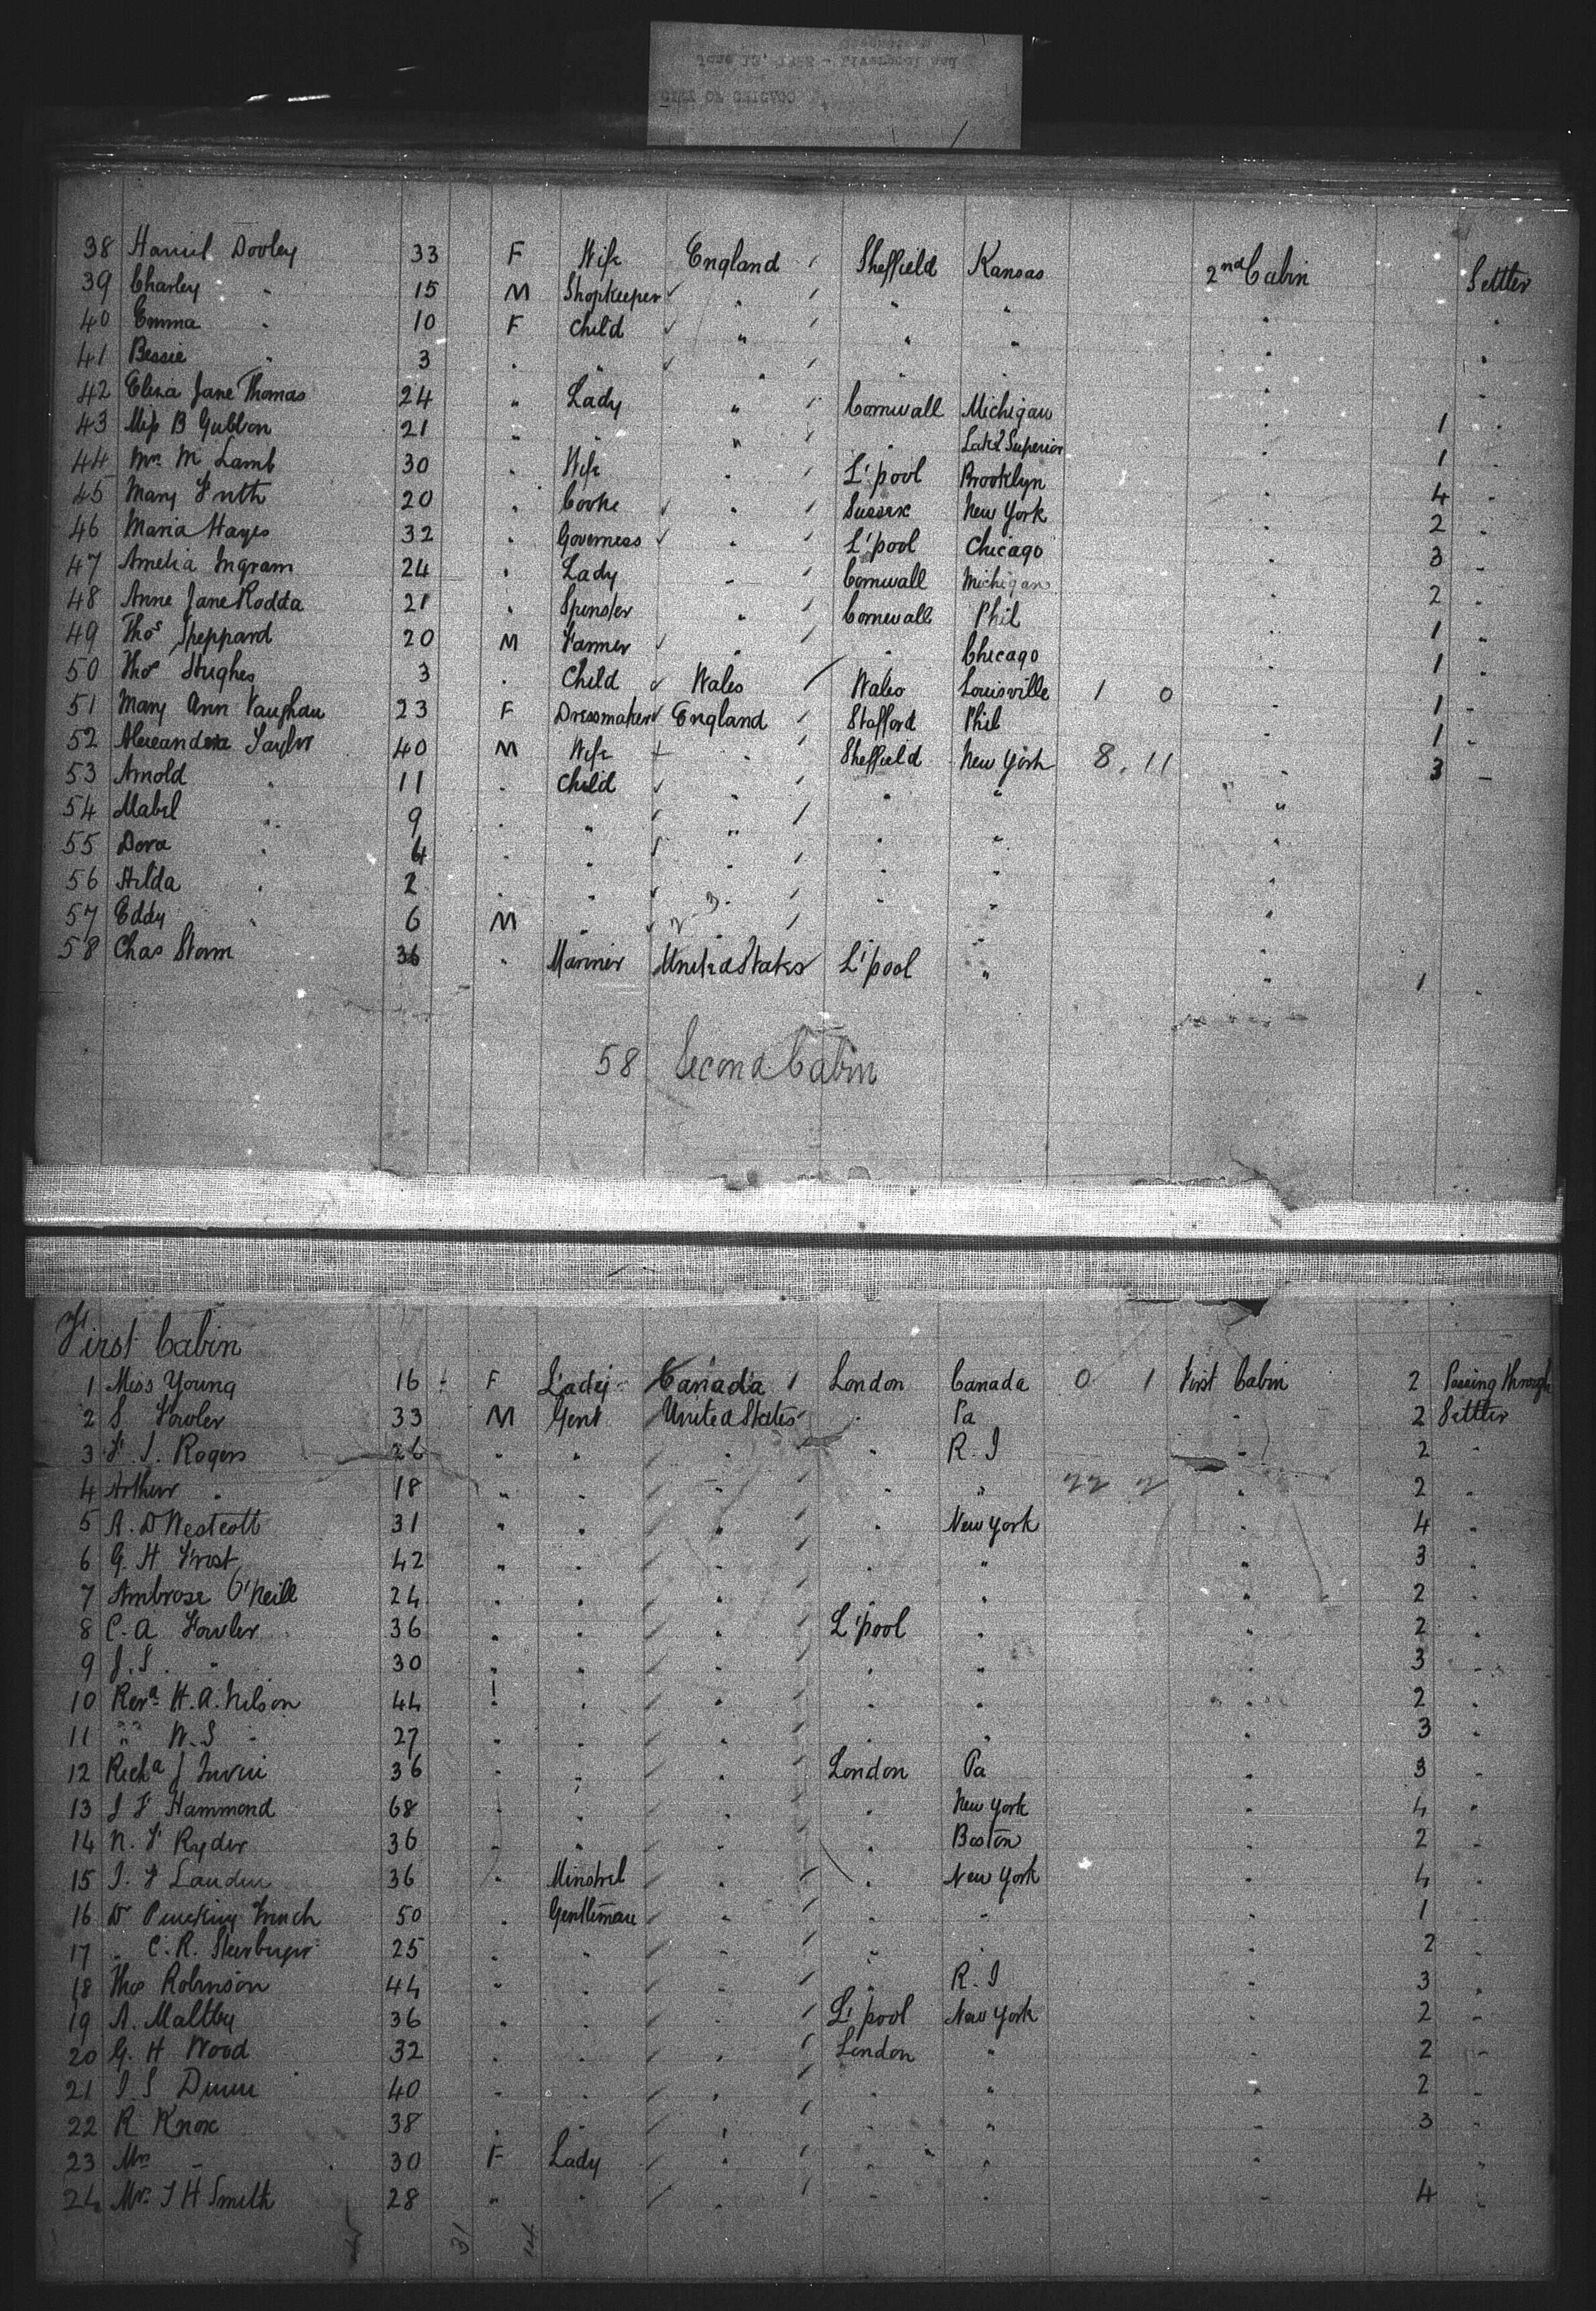 CITY OF CHICAGO
June 12, - Liverpool and
38 Harriet Dooley 33 F Wife England / Sheffield Kansas 2nd Cabin Settler
39 Charley " 15 M Shopkeeper ✓ " / " " " "
40 Emma " 10 F Child ✓ " / " " " "
41 Bessie " 3 " " ✓ " / " " " "
42 Eliza Jane Thomas 24 " Lady " / Cornwall Michigan " 1 "
43 Miss B Gubbon 21 " " " / " Lake Superior " 1 "
44 Mrs M Lamb 30 " Wife " / L'pool Brooklyn " 4 "
45 Mary 20 " Cooke ✓ " / Sussex New York " 2 "
46 Maria Hayes 32 " Governess ✓ " / L'pool Chicago " 3 "
47 Amelia Ingram 24 " Lady " / Cornwall Michigan " 2 "
48 Anne Jane Rodda 21 " Spinster " / Cornwall Phil " 1 "
49 Thos Sheppard 20 M Farmer ✓ " / " Chicago " 1 "
50 Thos Hughes 3 " Child ✓ Wales / Wales Louisville 1 0 " 1 "
51 Mary Ann Vaughan 23 F Dressmaker ✓ England / Stafford Phil " 1 "
52 Alexandra Taylor 40 M Wife + " / Sheffield New York 8, 11 " 3 "
53 Arnold " 11 " Child ✓ " / " " "
54 Mabel " 9 " " ✓ " / " " "
55 Dora " 4 " " ✓ " / " " "
56 Hilda " 2 " " ✓ " / " " "
57 Eddy " 6 M " ✓ " / " " "
58 Chas Storm 36 " Mariner United States L'pool " " 1 "
58 Second Cabin
First Cabin
1 Miss Young 16 F Lady Canada / London Canada 0 1 First Cabin 2 Passing through
2 S. Fowler 33 M Gent United States " Pa " 2 Settler
3 F. J. Rogers 26 " " / " " R. I " 2 "
4 Arthur " 18 " " / " / " " 22 2 " 2 "
5 A. D Westcott 31 " " / " / " New York " 4 "
6 G. H Frost 42 " " / " / " " " 3 "
7 Ambrose O'Neill 24 " " / " / " " " 2 "
8 C. A Fowler 36 " " / " / L'pool " " 2 "
9 J. S. " 30 " " / " / " " " 3 "
10 Revd H. A. Nelson 44 " " / " / " " " 2 "
11 " W. S " 27 " " / " / " " " 3 "
12 Richd J 36 " " / " / London Pa " 3 "
13 J F Hammond 68 " " / " / " New York " 4 "
14 N. F Ryder 36 " " / " / " Boston " 2 "
15 J. F 36 " Minstrel / " / " New York " 4 "
16 Dr French 50 " Gentleman / " / " " " 1 "
17 " C. R. 25 " " / " / " " " 2 "
18 Thos Robinson 44 " " / " / " R. I " 3 "
19 A. Maltby 36 " " / " / L'pool New York " 2 "
20 G. H Wood 32 " " / " / London " " 2 "
21 J. S Dunn 40 " " / " / " " " 2 "
22 R Knox 38 " " / " / " " " 3 "
23 Mrs " 30 F Lady / " / " " " "
24 Mrs J H Smith 28 " " / " / " " " 4 "
31